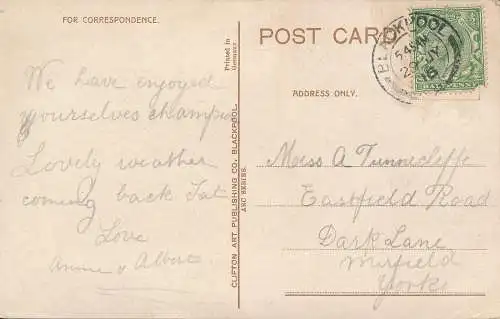 FOR CORRESPONDENCE.
We have enjoyed
yourselves champion
Lovely weather
coming back Sat
Love
Annie & Albert
Printed in
Germany.
CLIFTON ART PUBLISHING CO. BLACKPOOL.
ABC SERIES.
POST CARD
ADDRESS ONLY.
BLACKPOOL
HALFPENNY
Miss A Tunnecliffe
Eastfield Road
Dark Lane
Mirfield
Yorks